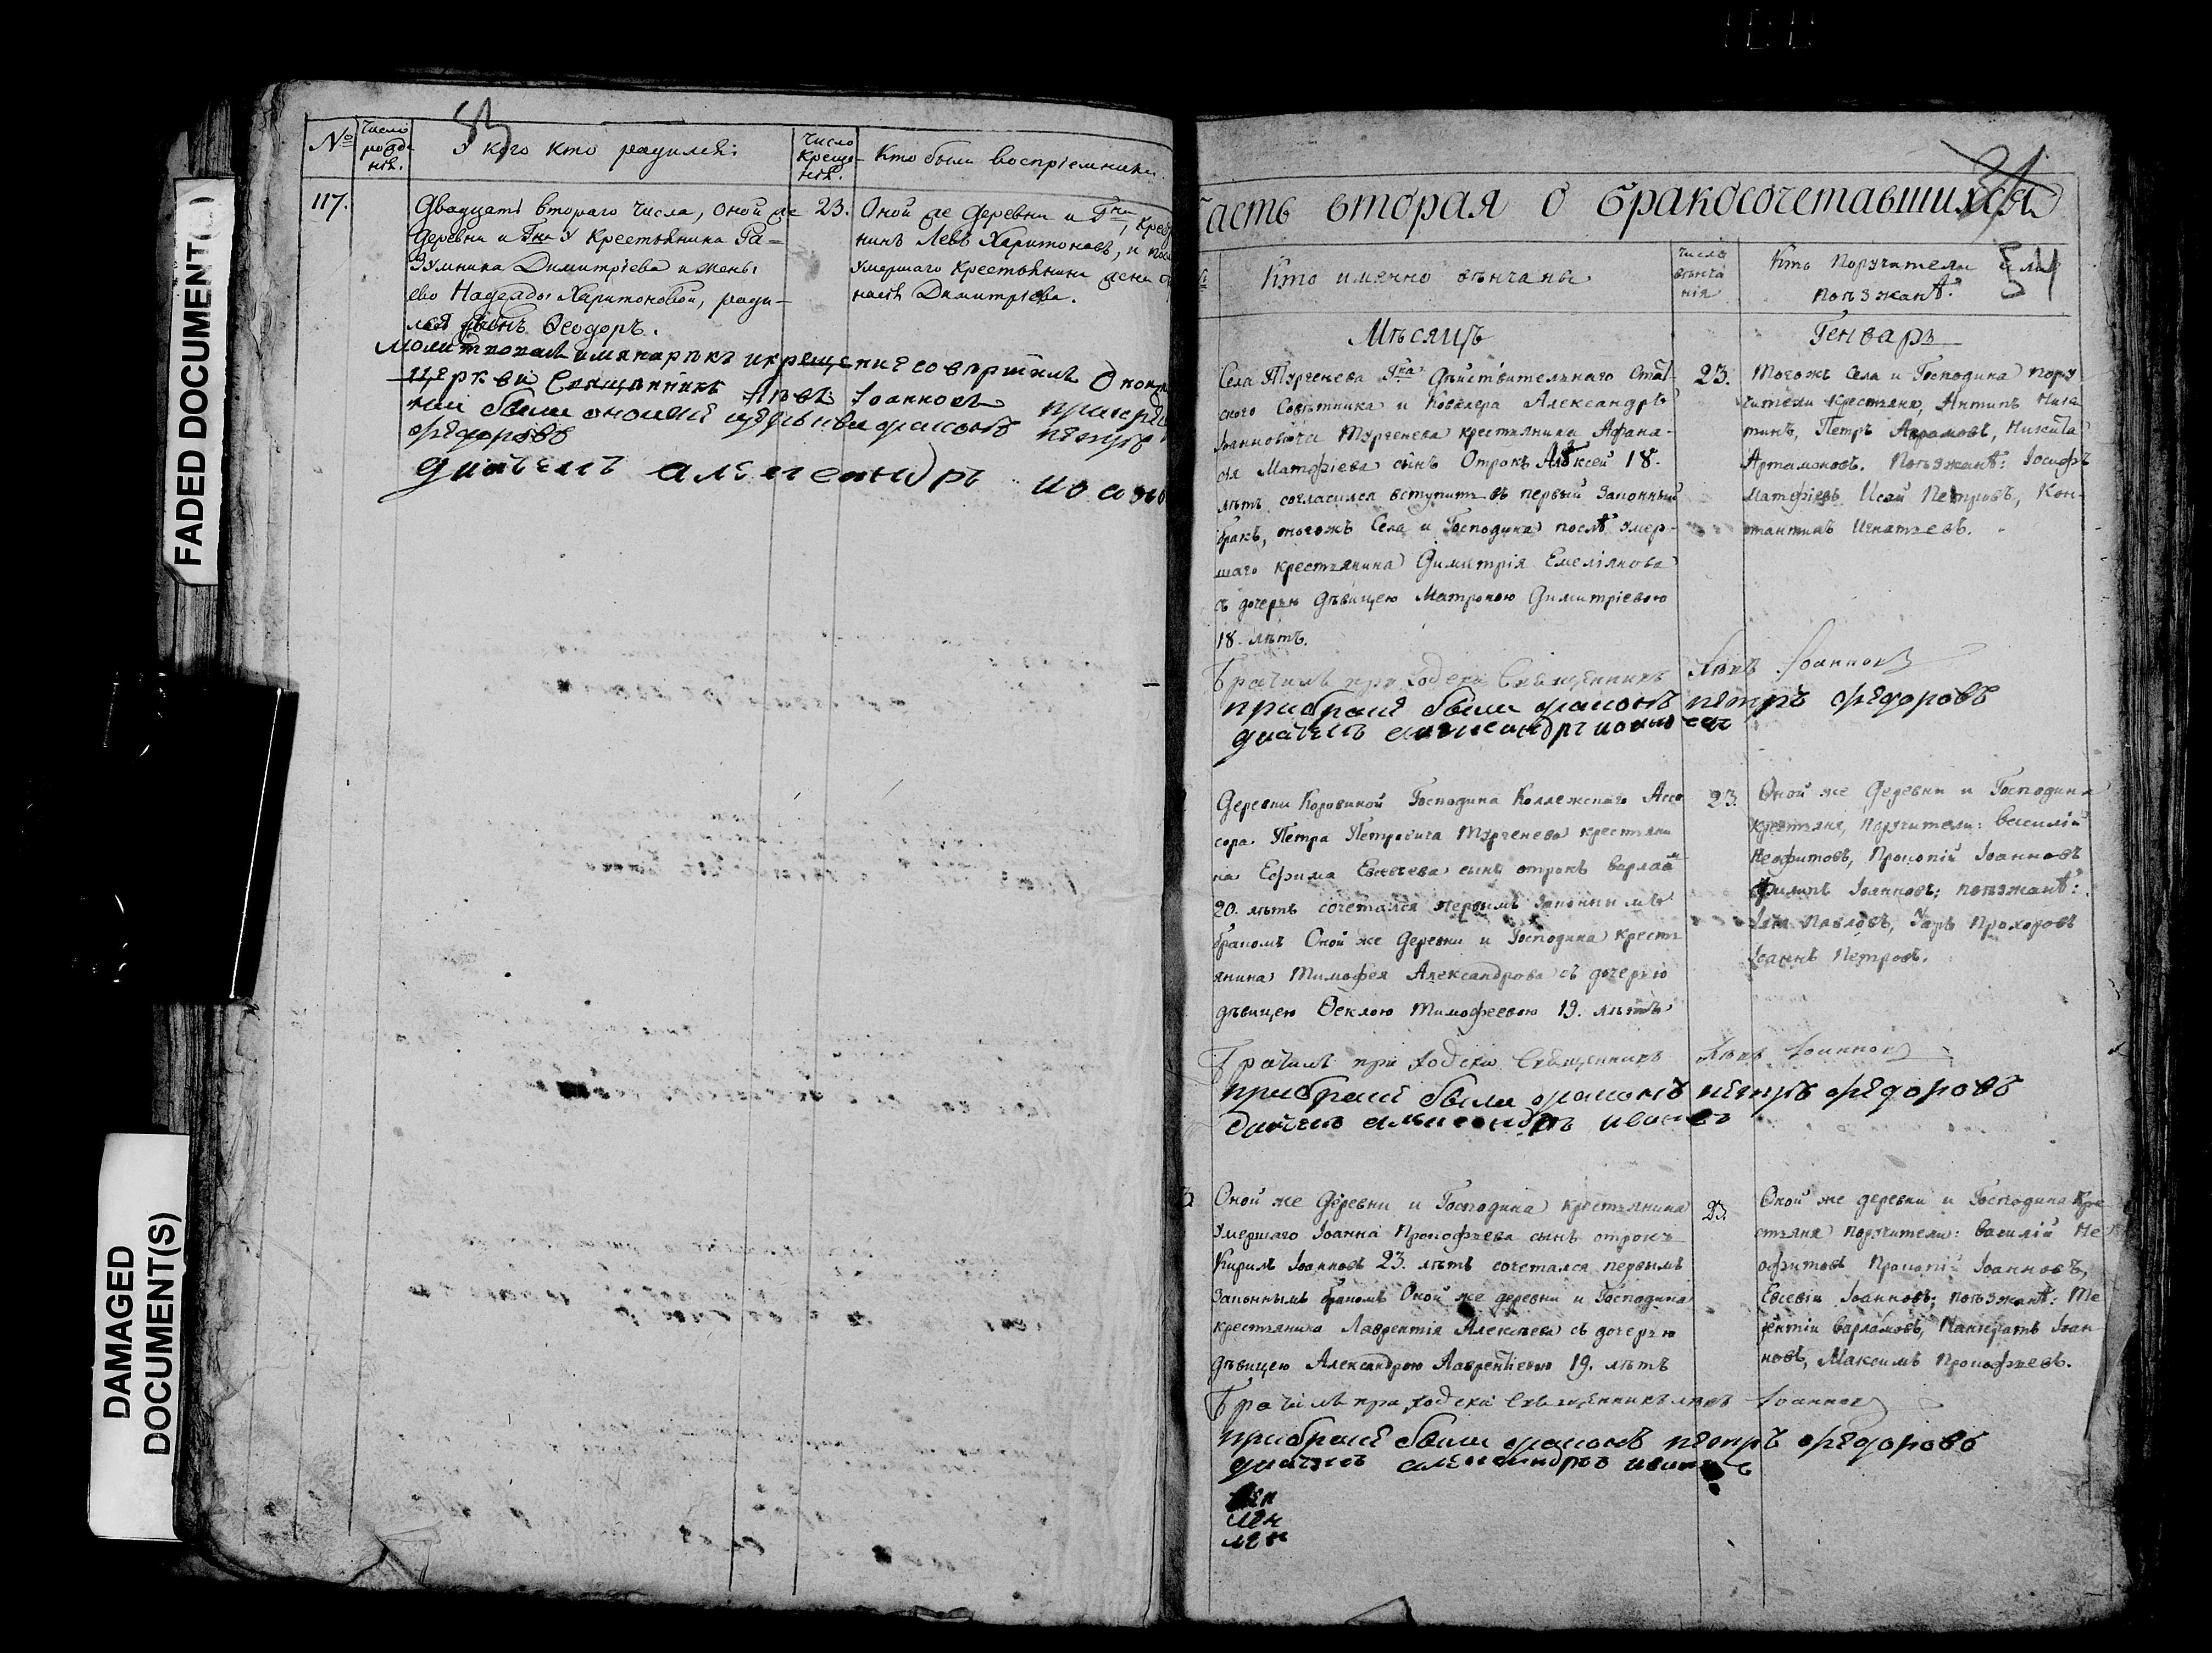 FADED DOCUMENT(S)
DAMAGED
DOCUMENT(S)
№
Число
рожде
нія.
У кого кто родились:
Число
Креще-
нія.
Кто были воспріемники.
117.
Двадцать втораго числа, оной же
деревни и Гна У Крестьянина Ра-
зумника Димитріева и жены
ево Надежды Харитоновой, роди-
лся сынъ Ѳеодоръ.
23.
Оной же деревни и Гна, Крестья
нинъ Левъ Харитоновъ, и
умершаго Крестьянина жена
Димитріева.
Молитвовалъ имя нарѣкъ и крещение совершилъ Оной
церкви Священникъ Левъ Іоанновъ при крещ
нии были ономже церькви диаконъ петръ
федоровъ
диачекъ александръ ивано
Часть вторая о бракосочетавшихся
54
Кто именно вѣнчаны
Число
вѣнча
нія
Кто Поручители или
поѣзжанѣ.
Мѣсяцъ
Генварь
Села Тургенева Гна Дѣйствительнаго Стат
скаго Совѣтника и Кавалера Александръ
Іванновича Тургенева крестьянина Афана-
сія Матфіева сынъ Отрокъ Алѣксей 18.
лѣтъ согласился вступить въ первый Законный
бракъ, тогожъ Села и Господина послѣ умер-
шаго крестьянина Димитрія Емеліянова
съ дочерью дѣвицею Матроною Димитріевою
18. лѣтъ.
23.
Тогожъ Села и Господина пору-
чители крестьяне, Антипъ Ники
тинъ, Петръ Аврамовъ, Никита
Артамоновъ. Поѣзжанѣ: Іосифъ
Матфіевъ Исай Петровъ, Кон-
стантинъ Игнатьевъ.
Брачилъ приходски Священникъ Левъ Іоанновъ
при браке были диаконъ петръ федоровъ
диачекъ александръ ивановъ
Деревни Коровиной Господина Коллежскаго Ассе
сора Петра Петровича Тургенева крестьяни
на Ефима Евсѣева сынъ отрокъ Варлам
20. лѣтъ сочетался первымъ Законнымъ
бракомъ Оной же деревни и Господина Кресть
янина Тимофея Александрова съ дочерью
дѣвицею Ѳеклою Тимофеевою 19. лѣтъ
23.
Оной же Деревни и Господина
крестьяне, Поручители: Василій
Неофитовъ, Прокопій Іоанновъ
Филипъ Іоанновъ; поѣзжанѣ:
Павловъ, Уаръ Прохоровъ
Іоаннъ Петровъ.
Брачилъ приходски Священникъ Левъ Іоанновъ
при браке были диаконъ петръ федоровъ
диачекъ александръ ивановъ
3
Оной же Деревни и Господина крестьянина
умершаго Іоанна Прокофьева сынъ отрокъ
Кирилъ Іоанновъ 23. лѣтъ сочетался первымъ
Законнымъ бракомъ Оной же деревни и Господина
крестьянина Лаврентія Алексѣева съ дочерью
дѣвицею Александрою Лаврентіевою 19. лѣтъ
23.
Оной же деревни и Господина Кре
стьяне Поручители: Василій Не
офитовъ Прокопій Іоанновъ,
Евсевій Іоанновъ; поѣзжанѣ: Те
рентій Варламовъ, Панкратъ Іоан
новъ, Максимъ Прокофьевъ.
Брачилъ приходски Священникъ Левъ Іоанновъ
при браке были диаконъ петръ федоровъ
диачекъ александръ ивановъ